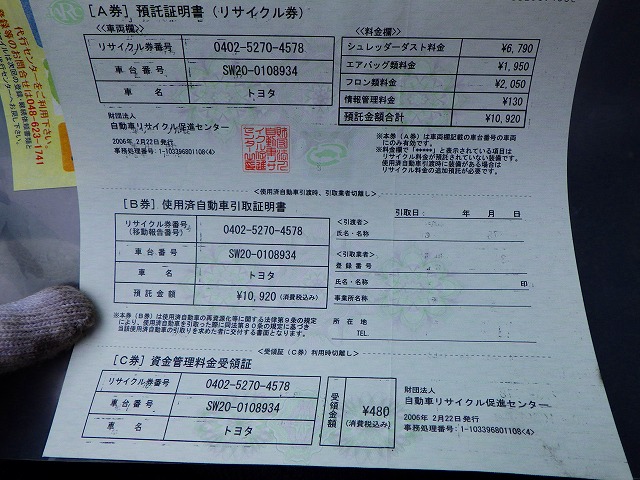 [A券] 預託証明書 (リサイクル券)
≪車両欄≫
リサイクル券番号 0402-5270-4578
車台番号 SW20-0108934
車名 トヨタ
≪料金欄≫
シュレッダーダスト料金 ¥6,790
エアバッグ類料金 ¥1,950
フロン類料金 ¥2,050
情報管理料金 ¥130
預託金額合計 ¥10,920
財団法人
自動車リサイクル促進センター
2006年 2月22日発行
事務処理番号: 1-103396801108<4>
※本券(A券)は車両欄記載の車台番号の車両
にのみ有効です。
※料金欄で「*****」と表示されている項目は
リサイクル料金が預託されていない装備です。
使用済自動車引渡時に装備がある場合は
リサイクル料金の追加預託が必要です。
<使用済自動車引渡時、引取業者切離し>
[B券] 使用済自動車引取証明書
リサイクル券番号
(移動報告番号) 0402-5270-4578
車台番号 SW20-0108934
車名 トヨタ
預託金額 ¥10,920 (消費税込み)
※本券(B券)は使用済自動車の再資源化等に関する法律第9条の規定
により、使用済自動車を引取った際に同法第80条の規定に基づき
当該使用済自動車の引取りを求めた者に交付する書面となります。
引取日: 年 月 日
<引渡者>
氏名・名称
<引取業者>
登録番号
氏名・名称 印
事業所名称
所在地
TEL
<受領証(C券)利用時切離し>
[C券] 資金管理料金受領証
リサイクル券番号 0402-5270-4578
車台番号 SW20-0108934
車名 トヨタ
受領金額 ¥480
(消費税込み)
財団法人
自動車リサイクル促進センター
2006年 2月22日発行
事務処理番号: 1-103396801108<4>
代行センターをご利用下さい。
登録等のお問合せは048-623-1741